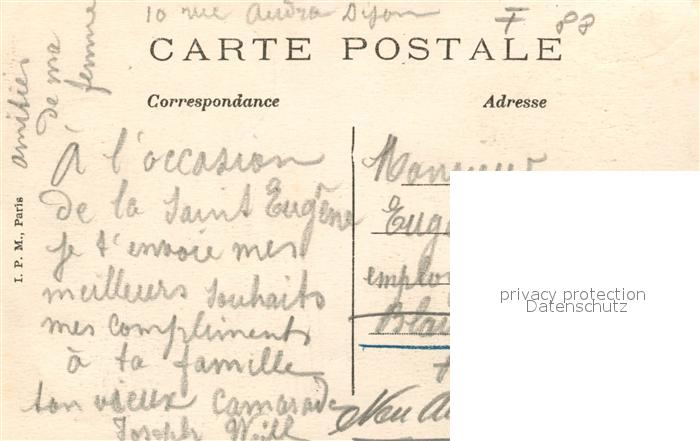 10 rue Audra Dijon
F 88
CARTE POSTALE
Correspondance
Adresse
amitiés
de ma
femme
I. P. M., Paris
À l'occasion
de la Saint Eugène
je t'envoie mes
meilleurs souhaits
mes compliments
à ta famille
ton vieux camarade
Joseph Weill
Monsieur
privacy protection
Datenschutz